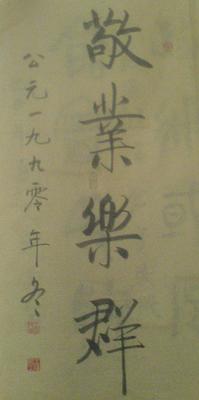 敬業樂群
公元一九九零年冬